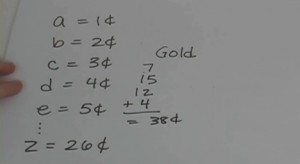 a = 1¢
b = 2¢
c = 3¢
d = 4¢
e = 5¢
⋮
z = 26¢
Gold
7
15
12
+ 4
= 38¢